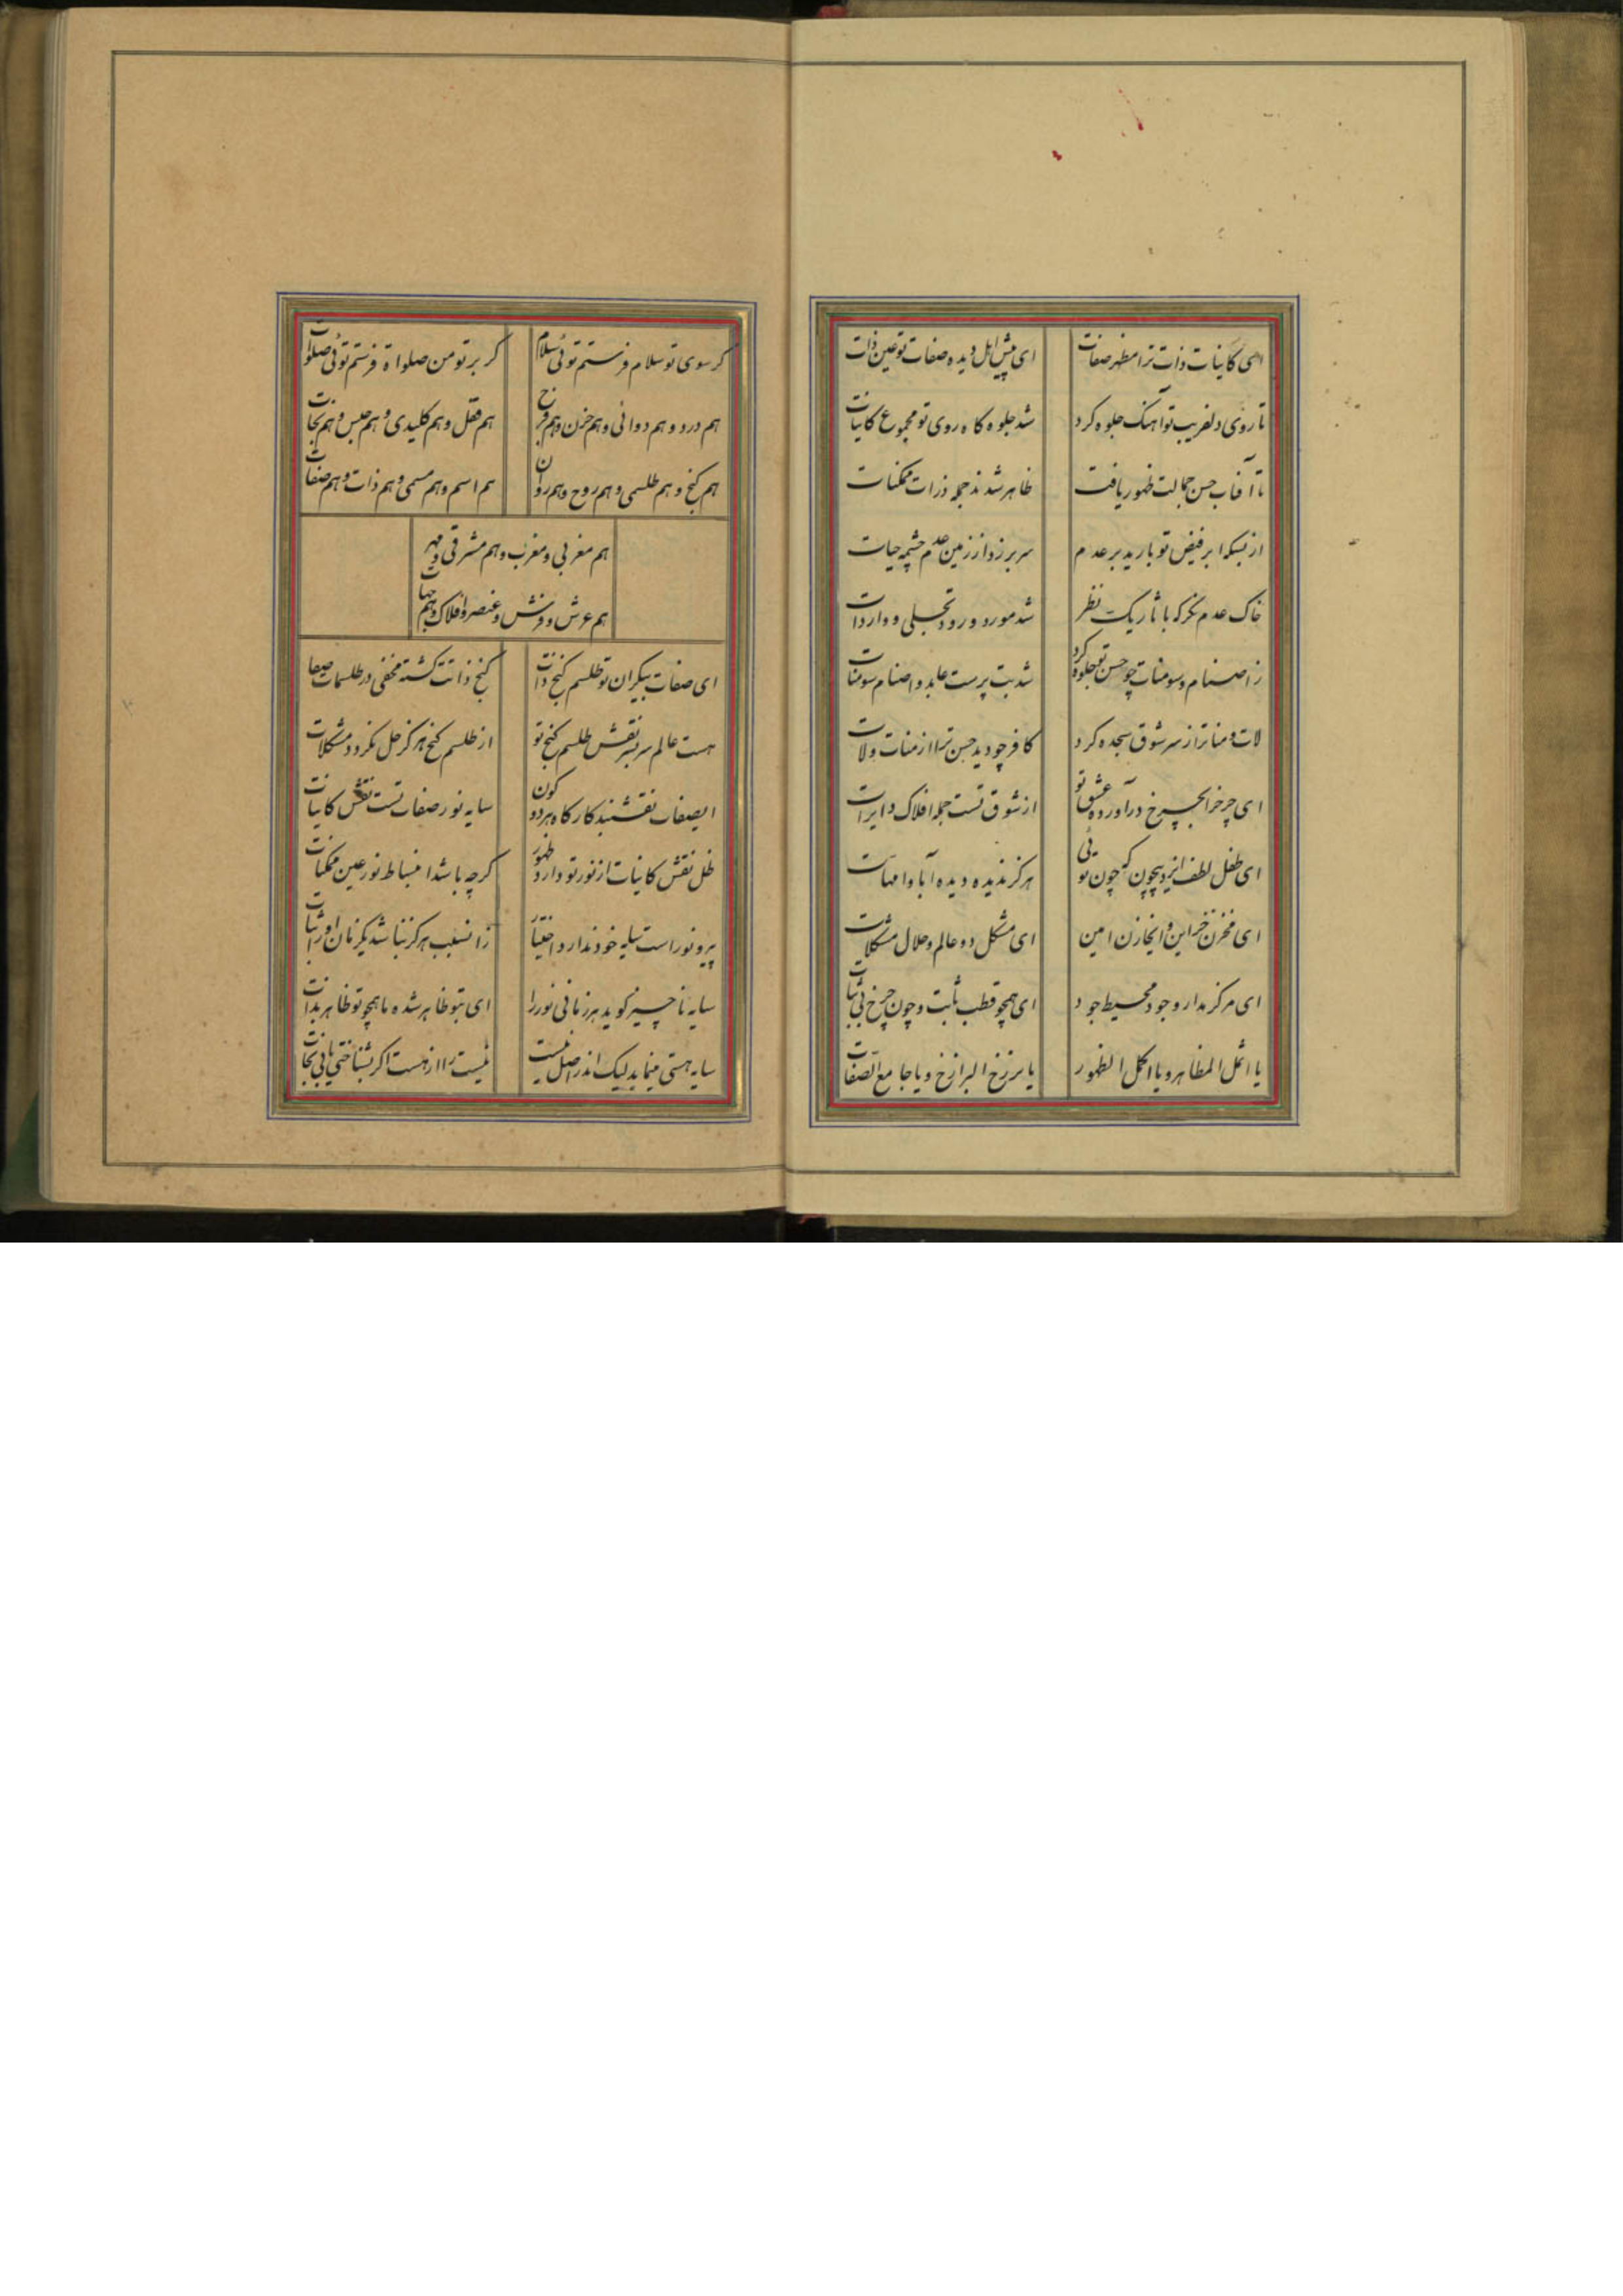 ای کاینات ذات ترا مظهر صفات ای پیش اهل دیده صفات تو عین ذات
تا روی دلفریب تو آهنک جلوه کرد شد جلوه کاه روی تو مجموع کاینات
تا آفتاب حسن جمالت ظهور یافت ظاهر شدند جمله ذرات ممکنات
از بسکه ابر فیض تو بارید بر عدم سر بر زد از زمین عدم چشمه حیات
خاک عدم نکر که باثار یک نظر شد مورد ورود تجلی و واردات
ز اصنام و سومنات چو حسن تو جلوه کرد شد بت پرست عابد و اصنام سومنات
لات و منا ترا ز سر شوق سجده کرد کافر چو دید حسن ترا از منات ولات
ای چرخ را بچرخ درآورده عشق تو از شوق تست جمله افلاک دایرات
ای طفل لطف ایزد بیچون که چون توئی هرکز ندیده دیده آبا و امهات
ای مخزن خزاین و ای خازن امین ای مشکل دو عالم و حلال مشکلات
ای مرکز مدار وجود و محیط جود ای همچو قطب ثابت و چون چرخ بی ثبات
یا اثمل المظاهر و یا اکمل الظهور یا برزخ البرازخ و یا جامع الصفات
کر سوی تو سلام فرستم توئی سلام کر بر تو من صلواة فرستم توئی صلوات
هم درد و هم دوائی و هم حزن و هم فرح هم قفل و هم کلیدی و هم حبس و هم نجات
هم کنج و هم طلسمی و هم روح و هم روان هم اسم و هم مسمی و هم ذات و هم صفات
هم مغربی و مغرب و هم مشرقی و مهر
هم عرش و فرش و عنصر و افلاک و هم جهات
ای صفات بیکران تو طلسم کنج ذات کنج ذاتت کشته مخفی در طلسمات صفات
هست عالم سر بسر نقش طلسم کنج تو از طلسم کنج هرکز حل نکردد مشکلات
ای صفات نقشبند کارکاه هر دو کون سایه نور صفات تست نقش کاینات
ظل نقش کاینات از نور تو دارد ظهور کرچه باشد انبساط نور عین ممکنات
پیرو نور است سایه خود ندارد اختیار زانسبب هرکز نباشد یکزمان او را ثبات
سایه ناچیز کوید هر زمانی نور را ای بتو ظاهر شده ما همچو تو ظاهر بذات
سایه هستی مینماید لیک اندر اصل نیست نیست را از هست اکر بشناختی یابی نجات